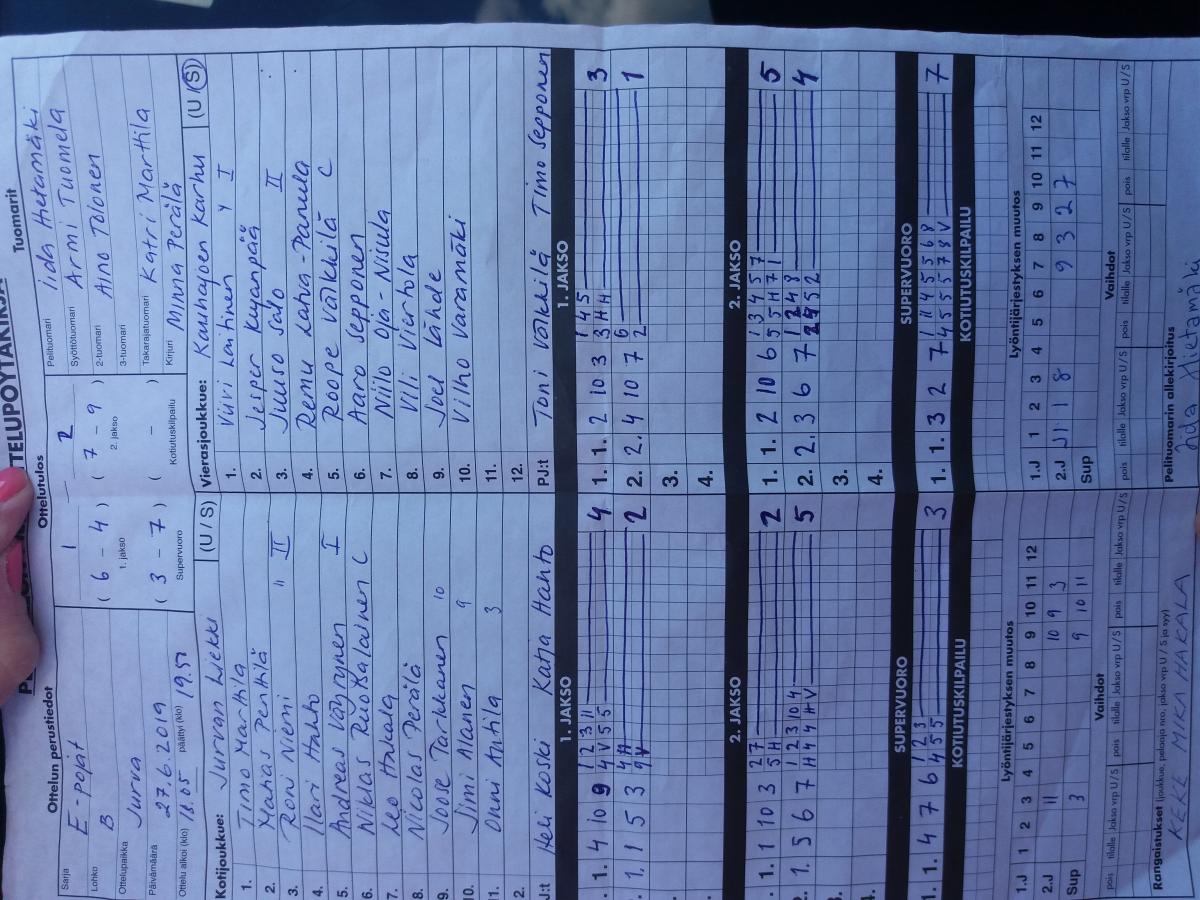 TELUPÖYTÄKIRJA
Ottelun perustiedot
Sarja E-pojat
Lohko B
Ottelupaikka Jurva
Päivämäärä 27.6.2019
Ottelu alkoi (klo) 18.05 päättyi (klo) 19.57
Ottelutulos
1 – 2
( 6 - 4 ) ( 7 - 9 )
1. jakso 2. jakso
( 3 - 7 ) ( - )
Supervuoro Kotiutuskilpailu
Tuomarit
Pelituomari Iida Hietamäki
Syöttötuomari Armi Tuomela
2-tuomari Aino Tolonen
3-tuomari
Takarajatuomari Katri Marttila
Kirjuri Minna Perälä
Kotijoukkue: Jurvan Liekki (U / S)
1. Timo Marttila
2. Matias Penttilä
3. Roni Niemi " II
4. Ilari Hahto
5. Andreas Väyrynen I
6. Niklas Ruotsalainen C
7. Leo Hakala
8. Nicolas Perälä
9. Joose Tarkkanen 10
10. Jimi Alanen 9
11. Onni Anttila 3
2.
J:t Heli Koski Katja Hahto
Vierasjoukkue: Kauhajoen Karhu (U / S)
1. Viivi Laitinen Y I
2. Jesper Kujanpää
3. Juuso Salo II
4. Remu Lahia-Panula
5. Roope Välkkilä C
6. Aaro Sepponen
7. Niilo Oja-Nisula
8. Villi Viertola
9. Joel Lähde
10. Vilho Varamäki
11.
12.
PJ:t Toni Välkkilä Timo Sepponen
1. JAKSO
1. 1. 4 10 9 1 2 3 11 4
4 V 5 5
1. 1 5 3 4 H 2
9 V
1. JAKSO
1. 1. 2 10 3 1 4 5 3
3 H H
2. 2. 4 10 7 6 1
2
3.
4.
2. JAKSO
1. 1. 1 10 3 2 7 2
5 H
2. 1. 5 6 7 1 2 3 10 4 5
H 4 4 H V
3.
4.
2. JAKSO
1. 1. 2 10 6 1 3 4 5 7 5
5 5 H 7 1
2. 2. 3 6 7 1 2 4 8 4
5 2
3.
4.
SUPERVUORO
1. 1. 4 7 6 1 2 3 3
4 5 5
SUPERVUORO
1. 1. 3 2 7 1 1 4 5 5 6 8 7
4 5 5 5 7 8 V
KOTIUTUSKILPAILU
KOTIUTUSKILPAILU
Lyöntijärjestyksen muutos
1.J 1 2 3 4 5 6 7 8 9 10 11 12
2.J 11 10 9 3
Sup 3 9 10 11
Lyöntijärjestyksen muutos
1.J 1 2 3 4 5 6 7 8 9 10 11 12
2.J 1 8 9 3 2 7
Sup
Vaihdot
pois tilalle Jakso vrp U / S pois tilalle Jakso vrp U / S pois tilalle Jakso vrp U / S
Vaihdot
pois tilalle Jakso vrp U / S pois tilalle Jakso vrp U / S pois tilalle Jakso vrp U / S
Rangaistukset (joukkue, pelaaja nro, jakso vrp U / S ja syy)
KEKE MIKA HAKALA
Pelituomarin allekirjoitus
Iida Hietamäki